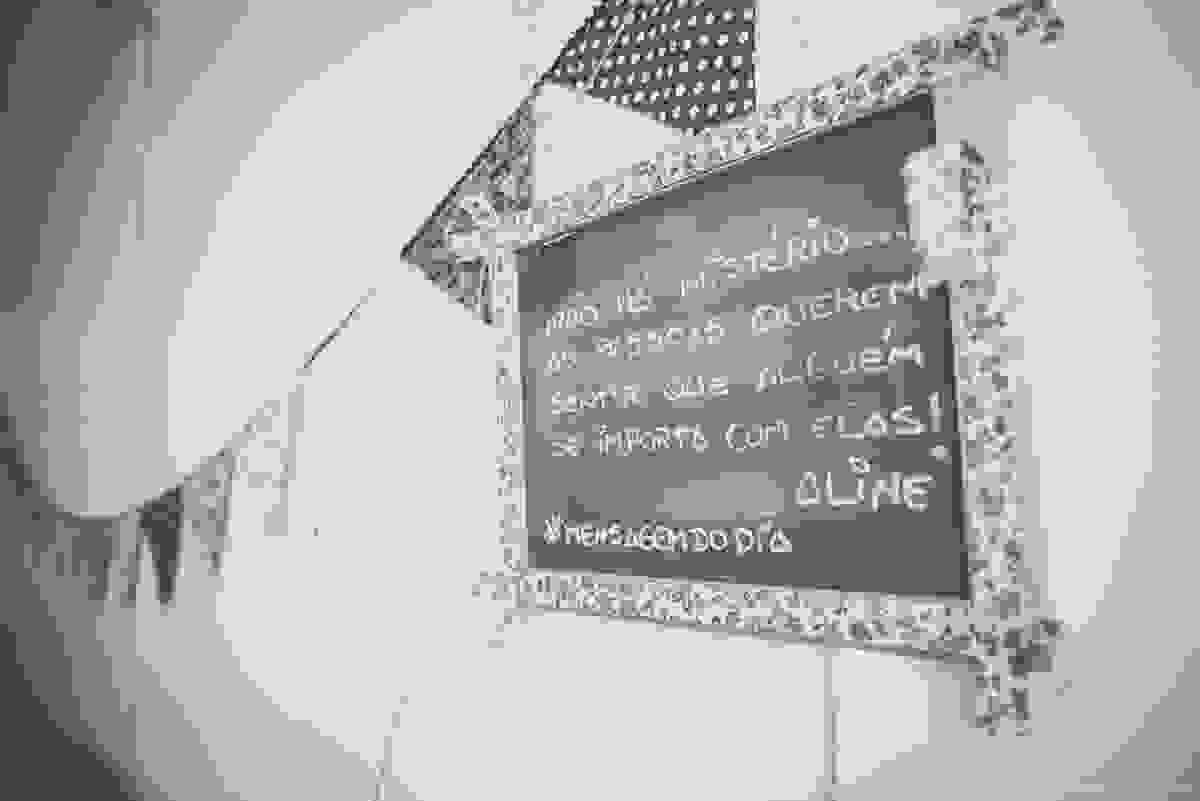 NÃO HÁ MISTÉRIO....
AS PESSOAS QUEREM
SENTIR QUE ALGUÉM
SE IMPORTA COM ELAS!
ALINE
#MENSAGEMDODIA